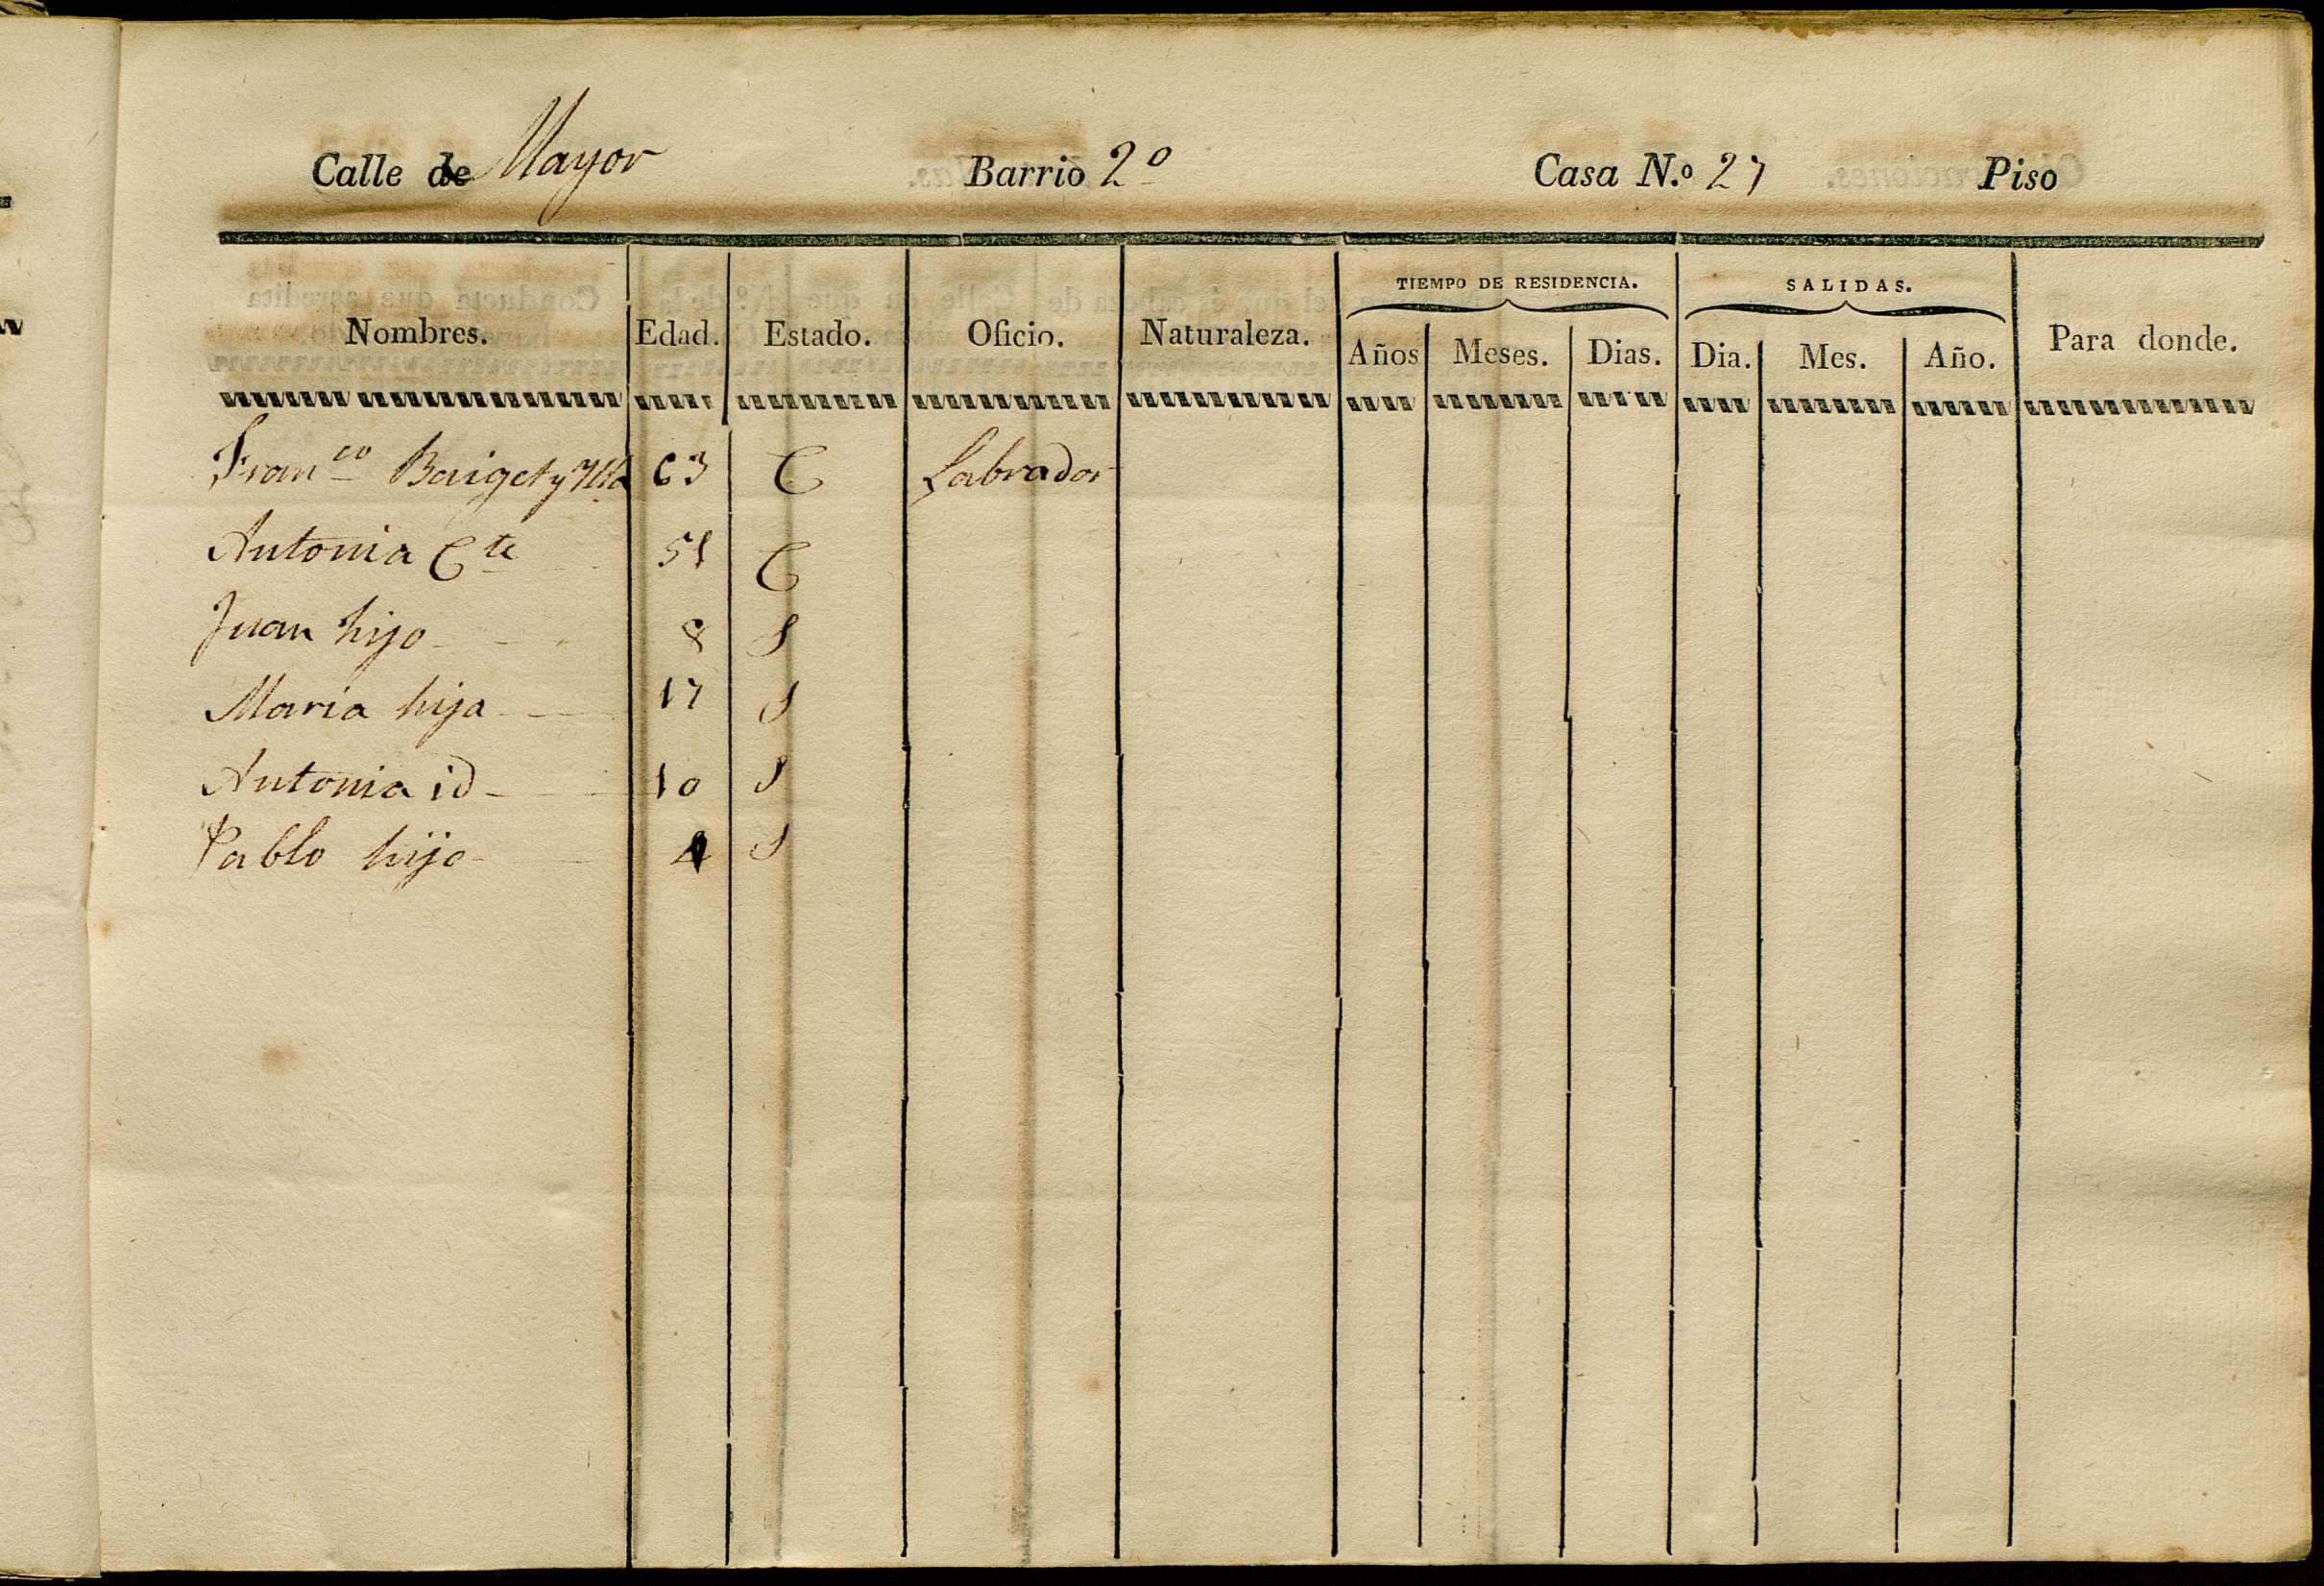 Calle de Mayor Barrio 2º Casa N.º 27 Piso
TIEMPO DE RESIDENCIA. SALIDAS.
Nombres. Edad. Estado. Oficio. Naturaleza. Años Meses. Dias. Dia. Mes. Año. Para donde.
Franco Baiget y 63 C Labrador
Antonia Cte 51 C
Juan hijo 8 S
Maria hija 17 S
Antonia id 10 S
Pablo hijo 4 S